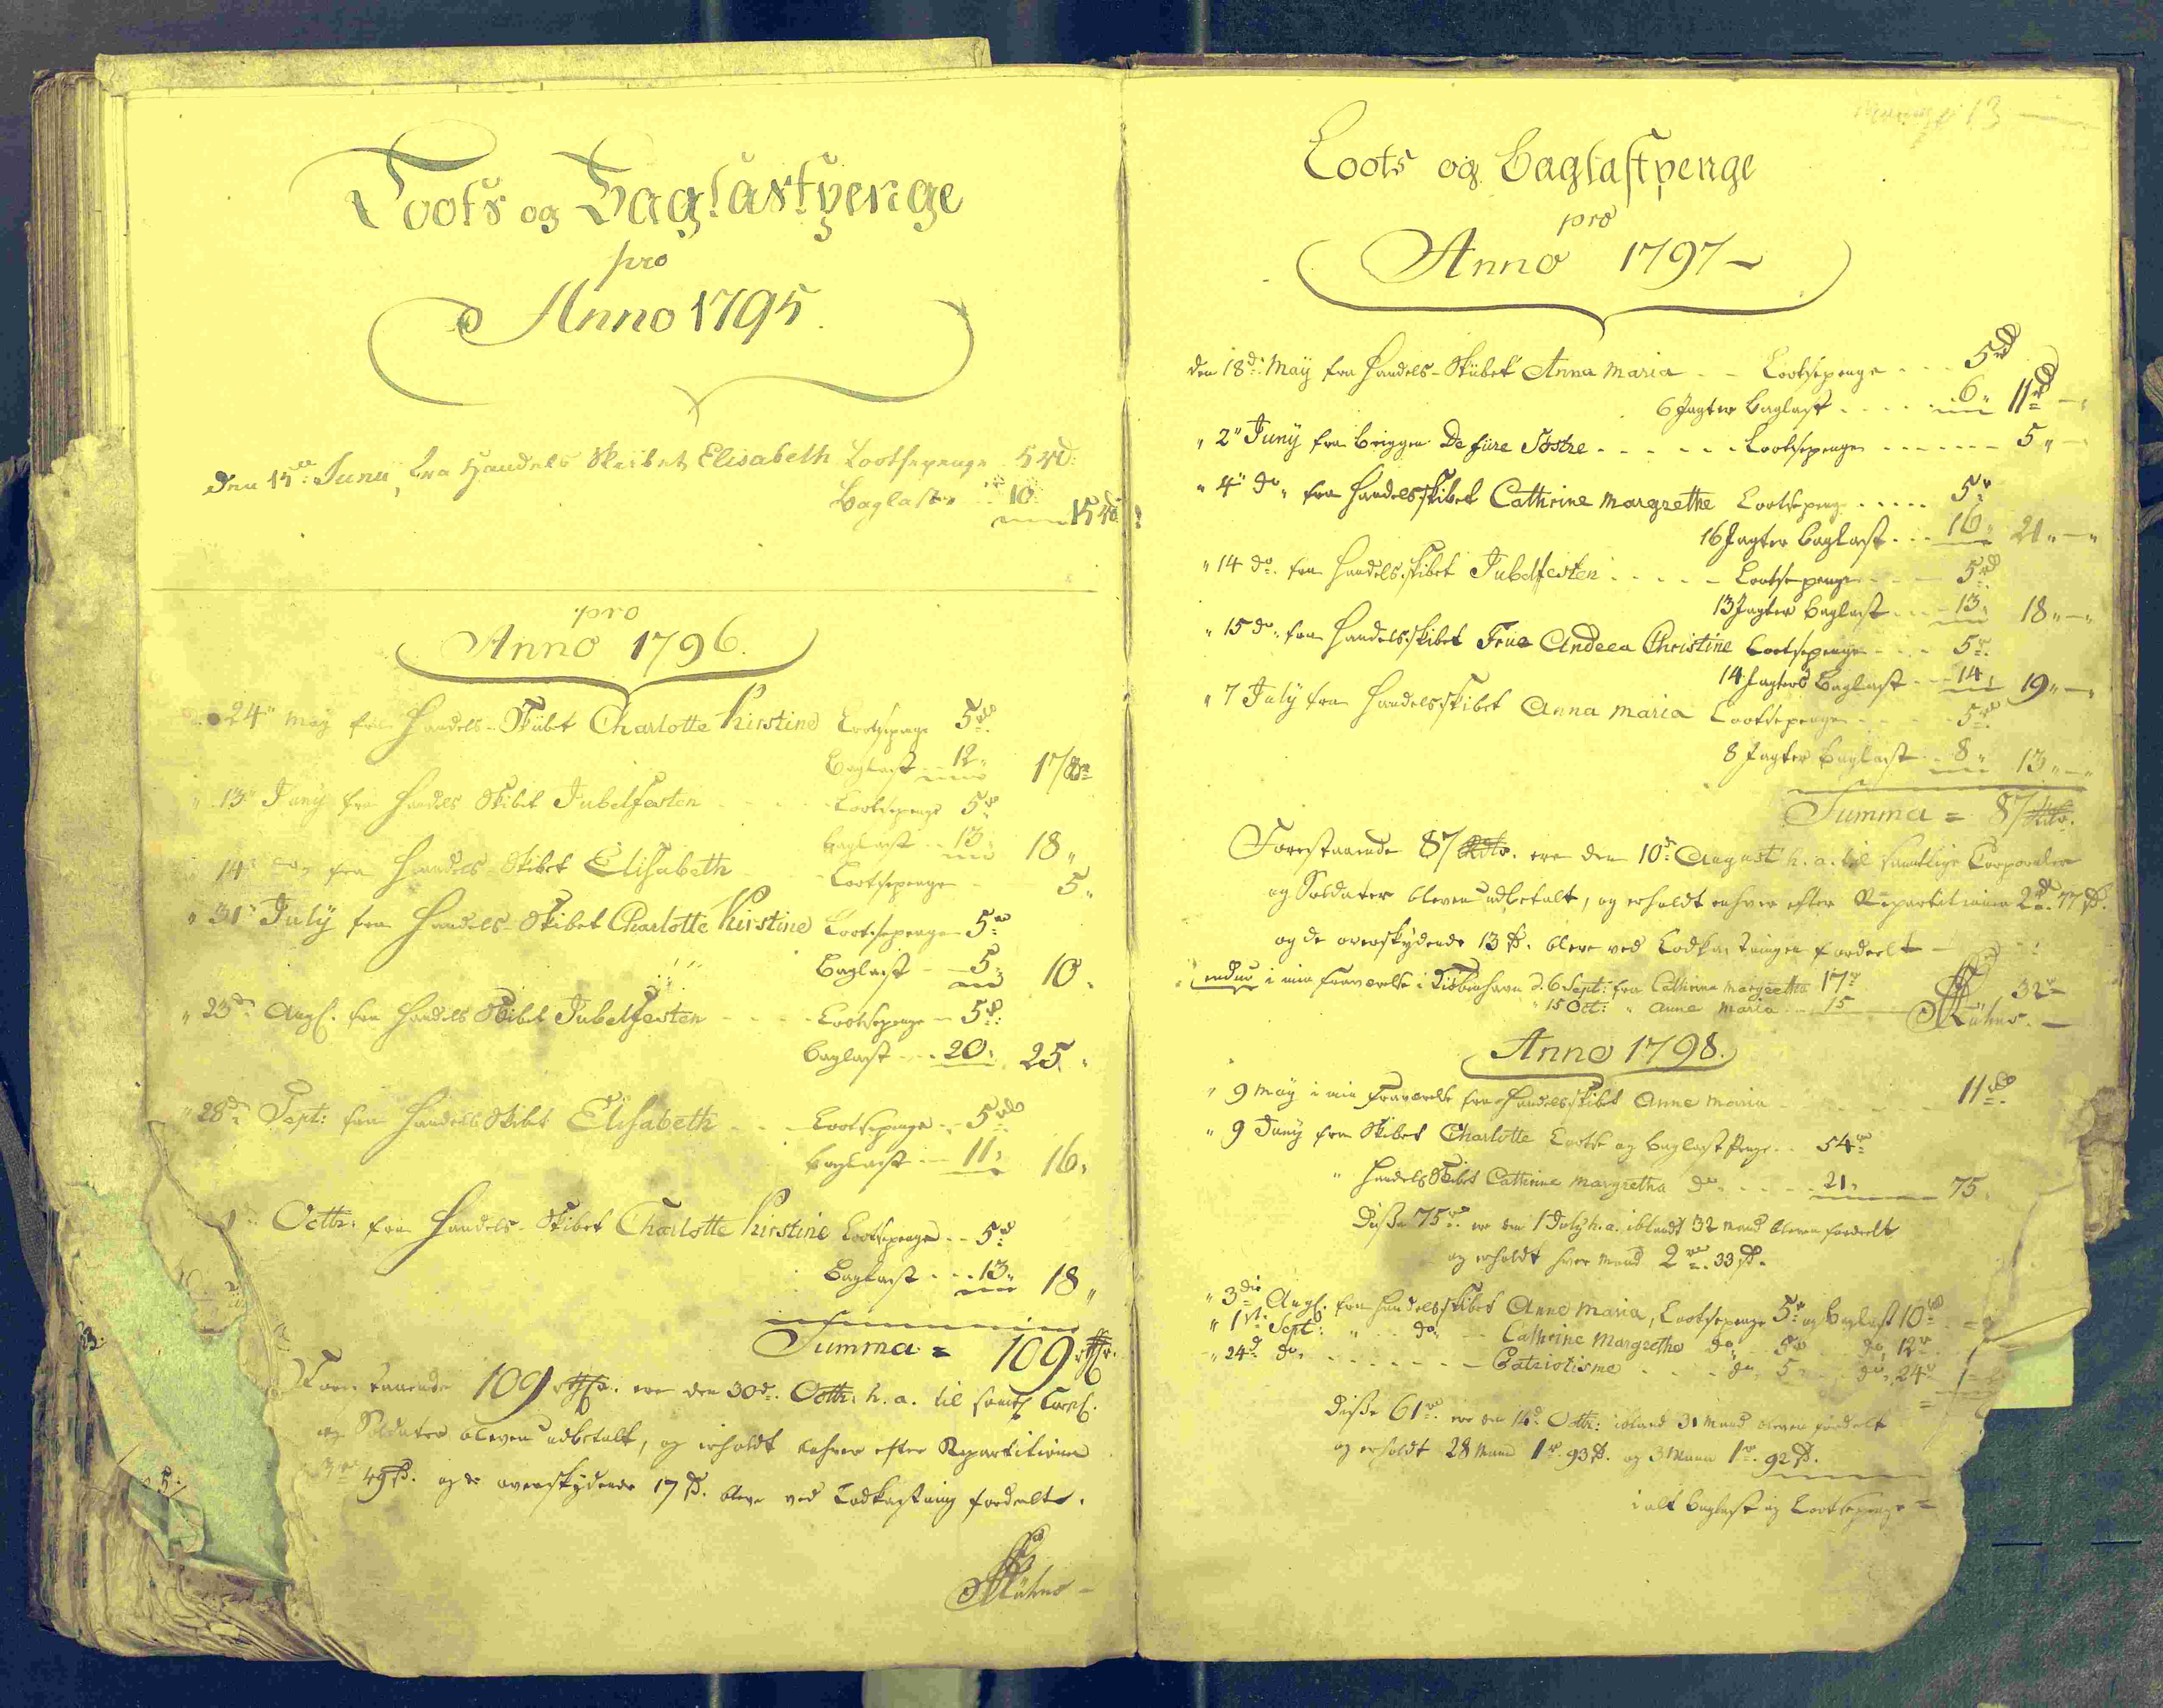 Loots og Baglastpenge
pro
Anno 1795.
Den 15de Junii, fra Handels Skibet Elisabeth Lootsepenge 5 rd:
Baglast " 10
15 rd
pro
Anno 1796.
24" May fra Handels-Skibet Charlotte Kirstine Lootsepenge 5rd
Baglast .. 12" 17
" 13" Juny fra Handels Skibet Jubelfesten - - - - Lootsepenge 5rd
Baglast .. 13" 18"
14" do fra Handels-Skibet Elisabeth - - - Lootsepenge - 5"
" 31" July fra Handels-Skibet Charlotte Kirstine Lootsepenge 5rd
Baglast - 5" 10"
" 23de Augs. fra Handels Skibet Jubelfesten - - - - Lootsepenge - 5rd
Baglast - - 20" 25"
" 28de Sept: fra Handels Skibet Elisabeth - - - Lootsepenge - 5rd
Baglast - 11" 16"
Octbr: fra Handels-Skibet Charlotte Kirstine Lootsepenge - - 5rd
Baglast - - 13" 18"
Summa = 109
109 ere den 30d. Octbr: h. a. til Corpl.
og Soldater bleven udbetalt, og erholdt enhver efter Repartitionen
49 ß. og de overskydende 17 ß. bleve ved Lodkastning fordeelte.
Loots og Baglastpenge
pro
Anno 1797 -
den 18d: May fra Handels-Skibet Anna Maria - - Lootsepenge - - - 5rd
6 Jagter Baglast - - - - 6" 11rd -"
" 2" Juny fra Briggen De fiire Søstre - - - - - - Lootsepenge - - - - - - 5" -
" 4" do" fra Handelsskibet Cathrine Margrethe Lootsepenge - - - - - 5r
16 Jagter Baglast - - - 16" 21" -"
" 14 do. fra Handelsskibet Jubelfesten - - - - - Lootsepenge - - - 5rd
13 Jagter Baglast - - - 13" 18" -"
" 15 do. fra Handelsskibet Frue Andrea Christine Lootsepenge - - - 5r.
14 Jagter Baglast - - - 14" 19" -"
" 7 July fra Handelsskibet Anna Maria Lootsepenge - - - - 5rd
8 Jagter Baglast - - 8" 13" -"
Summa = 87 Rdlr.
Forestaaende 87 Rdlr. ere den 10d: August h. a. til samtlige Corporaler
og Soldater bleven udbetalt, og erholdt enhver efter Repartitionen 2rd. 77 ß.
og de overskydende 13 ß. bleve ved Lodkastningen fordeelt -
endnu i min Fraværelse i Kiøbenhavn d. 6 Sept: fra Cathrine Margrethe 17r
" 15 Oct: " Anne Maria - - 15 32r -
Anno 1798.
" 9 May i min Fraværelse fra Handelsskibet Anne Maria - - - - - 11rd
" 9 Juny fra Skibet Charlotte Lootse og Baglast Penge - - 54rd
" Handels Skibet Cathrine Margretha do. - - - - 21" 75"
Disse 75rd. ere den 1 July h. a. iblandt 32 Mand bleven fordeelt
og erholdt hver Mand 2rd. 33 ß.
" 3die Augs. fra Handelsskibet Anne Maria, Lootsepenge 5r og Baglast 10rd
" 1st. Sept: " - - do" - - Cathrine Margrethe do" - - 5rd - - do, 12r
" 24d. do, - - - - - - - Patriotisme - - - - do, 5 - - - do, 24r
Disse 61rd. ere den 14d. Octbr: ibland 31 Mand bleven fordeelt
og erholdt 28 Mand 1r. 93 ß. og 3 Mann 1r. 92 ß.
i alt Baglast og Lootsepenge =